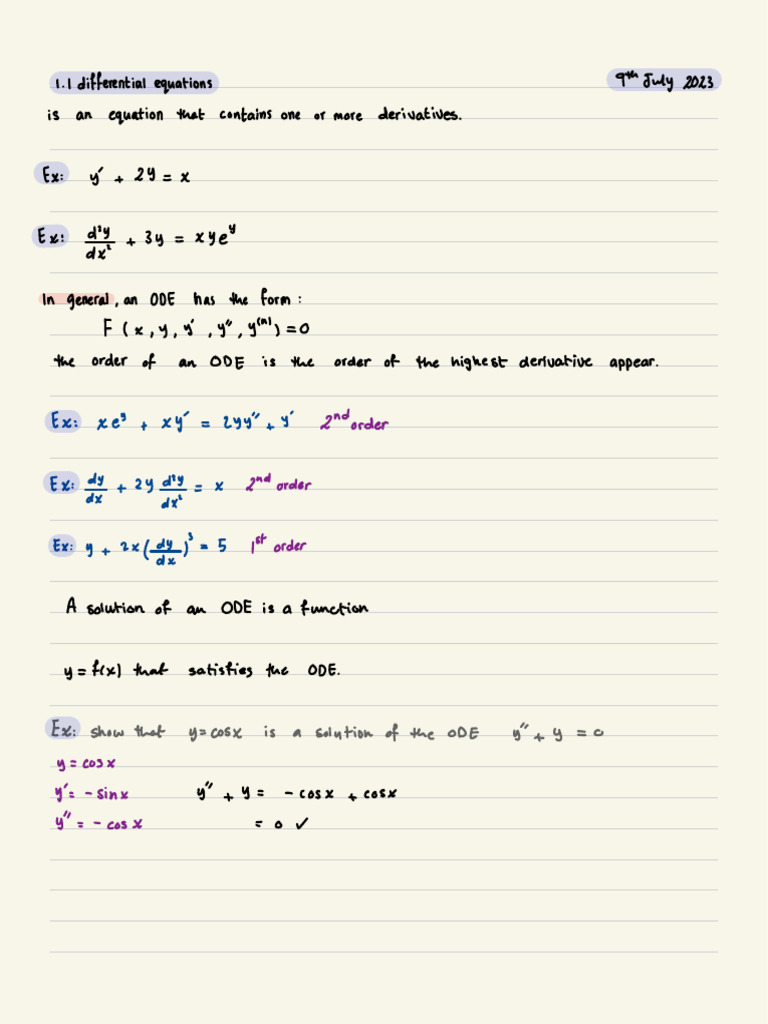 1.1 differential equations 9th July 2023
is an equation that contains one or more derivatives.
Ex: y′ + 2y = x
Ex: d²y/dx² + 3y = xye^y
In general, an ODE has the form:
F(x, y, y′, y″, y⁽ⁿ⁾) = 0
the order of an ODE is the order of the highest derivative appear.
Ex: xe^y + xy′ = 2yy″ + y′ 2nd order
Ex: dy/dx + 2y d²y/dx² = x 2nd order
Ex: y + 2x(dy/dx)³ = 5 1st order
A solution of an ODE is a function
y = f(x) that satisfies the ODE.
Ex: show that y=cosx is a solution of the ODE y″ + y = 0
y = cosx
y′ = - sinx y″ + y = - cosx + cosx
y″ = - cosx = 0 ✓